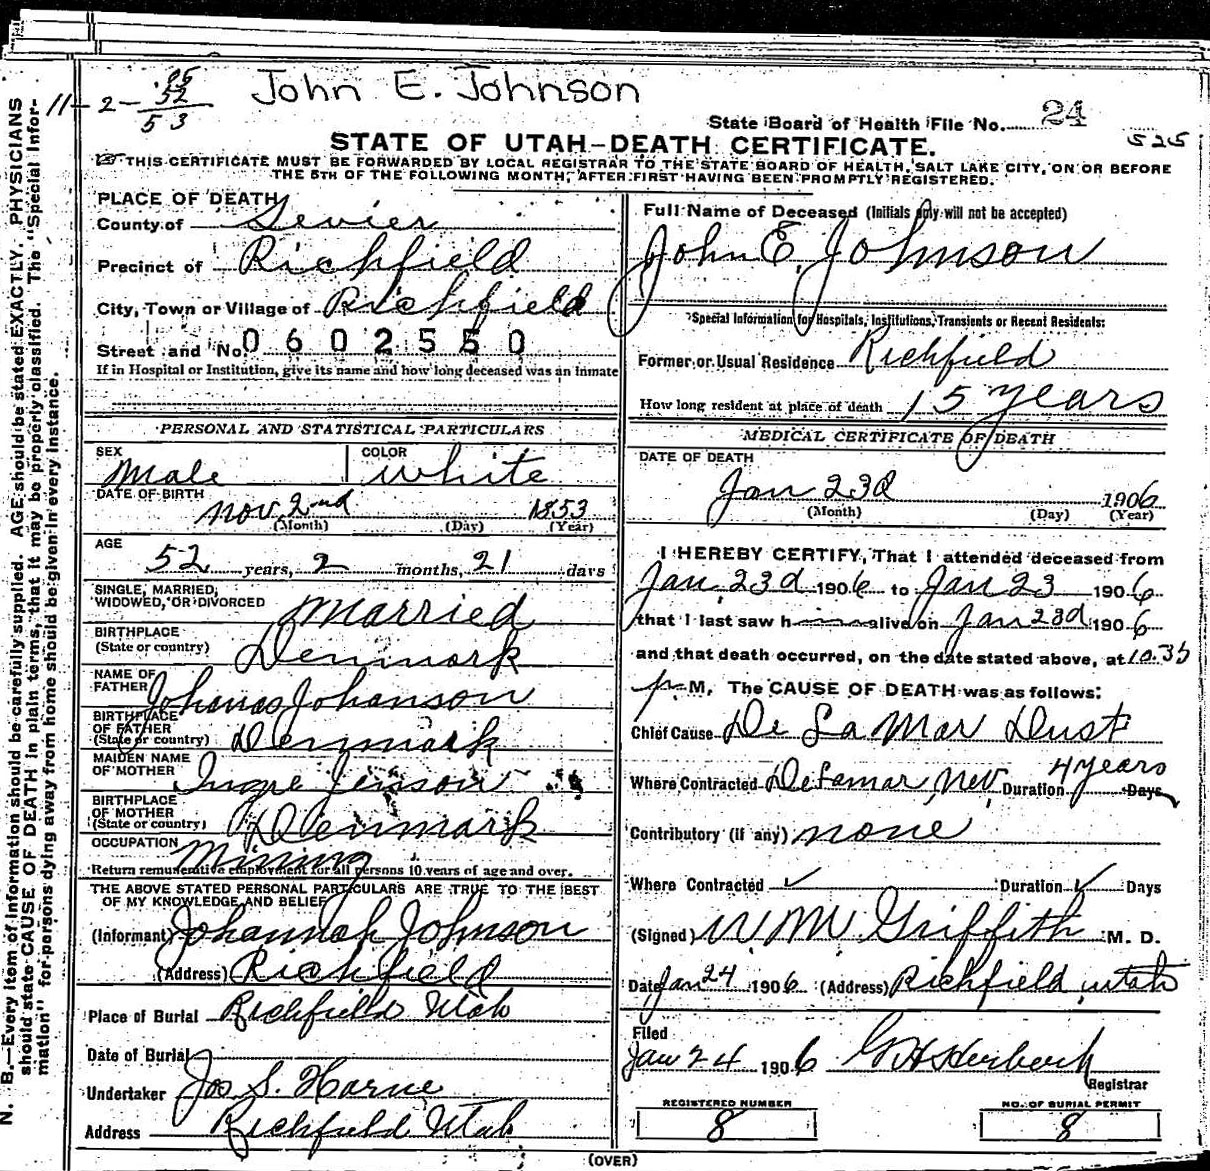 John E. Johnson
11-2-
.05
52
53
State Board of Health File No. 24
525
STATE OF UTAH-DEATH CERTIFICATE.
THIS CERTIFICATE MUST BE FORWARDED BY LOCAL REGISTRAR TO THE STATE BOARD OF HEALTH, SALT LAKE CITY, ON OR BEFORE
THE 5TH OF THE FOLLOWING MONTH, AFTER FIRST HAVING BEEN PROMPTLY REGISTERED.
N. B.—Every item of information should be carefully supplied. AGE should be stated EXACTLY. PHYSICIANS
should state CAUSE OF DEATH in plain terms, that it may be properly classified. The "Special Infor-
mation" for persons dying away from home should be given in every instance.
PLACE OF DEATH
County of Sevier
Precinct of Richfield
City, Town or Village of Richfield
Street and No. 0602550
If in Hospital or Institution, give its name and how long deceased was an inmate
PERSONAL AND STATISTICAL PARTICULARS
SEX COLOR
Male White
DATE OF BIRTH
Nov 2nd 1853
(Month) (Day) (Year)
AGE
52 years, 2 months, 21 days
SINGLE, MARRIED,
WIDOWED, OR DIVORCED Married
BIRTHPLACE
(State or country) Denmark
NAME OF
FATHER Johanas Johanson
BIRTHPLACE
OF FATHER
(State or country) Denmark
MAIDEN NAME
OF MOTHER Ingre Jenson
BIRTHPLACE
OF MOTHER
(State or country) Denmark
OCCUPATION Mining
Return remunerative employment for all persons 10 years of age and over.
THE ABOVE STATED PERSONAL PARTICULARS ARE TRUE TO THE BEST
OF MY KNOWLEDGE AND BELIEF
(Informant) Johannah Johnson
(Address) Richfield
Place of Burial Richfield Utah
Date of Burial
Undertaker Jos S. Horne
Address Richfield Utah
Full Name of Deceased (Initials only will not be accepted)
John E. Johnson
Special Information for Hospitals, Institutions, Transients or Recent Residents:
Former or Usual Residence Richfield
How long resident at place of death 15 years
MEDICAL CERTIFICATE OF DEATH
DATE OF DEATH
Jan 23d 1906
(Month) (Day) (Year)
I HEREBY CERTIFY, That I attended deceased from
Jan 23d 1906 to Jan 23 1906
that I last saw him alive on Jan 23d 1906
and that death occurred, on the date stated above, at 10.35
p M. The CAUSE OF DEATH was as follows:
Chief Cause De La Mar Dust
Where Contracted DeLamar, Nev. Duration 4 years Days
Contributory (if any) none
Where Contracted ✓ Duration ✓ Days
(Signed) W M Griffith M. D.
Date Jan 24 1906 (Address) Richfield, Utah
Filed
Jan 24 1906
Registrar
REGISTERED NUMBER NO. OF BURIAL PERMIT
8 8
(OVER)